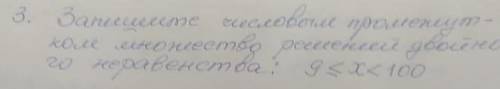 3. Запишите числовым промежут-
ком множество решений двойно
го неравенства: 9 ≤ x < 100